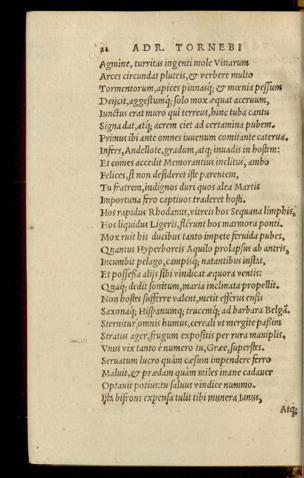 22 ADR. TORNEBI
Agmine, turritas ingenti mole Vinarum
Arces circundat pluteis, & verbere multo
Tormentorum, apices pinnasq; & mœnia pessum
Deijcit, aggestumq; solo mox æquat aceruum,
Iunctus erat muro qui terreus, hinc tuba cantu
Signa dat, atq; acrem ciet ad certamina pubem.
Primus ibi ante omnes iuuenum comitante caterua
Infers, Andellote, gradum, atq; inuadis in hostem:
Et comes accedit Memorantius inclitus, ambo
Felices, si non desideret iste parentem,
Tu fratrem, indignos duri quos alea Martis
Importuna fero captiuos traderet hosti.
Hos rapidus Rhodanus, vitreis hos Sequana limphis,
Hos liquidus Ligeris, flerunt hos marmora ponti.
Mox ruit his ducibus tanto impete feruida pubes,
Quantus Hyperboreis Aquilo prolapsus ab antris,
Incumbit pelago, campisq; natantibus instat,
Et possessa alijs sibi vindicat æquora ventis:
Quaq; dedit sonitum, maria inclinata propellit.
Non hostes sufferre valent, metit efferus ensis
Saxonaq; Hispanumq; trucemq; ad barbara Belgã.
Sternitur omnis humus, cereali vt mergite passim
Stratus ager, frugum expositis per rura maniplis.
Vnus vix tanto è numero tu, Græe, superstes.
Seruatum lucro quàm cæsum impendere ferro
Maluit, & prædam quàm miles inane cadauer
Optauit potius: tu saluus vindice nummo.
Ista bifrons expensa tulit tibi munera Ianus,
Atq;